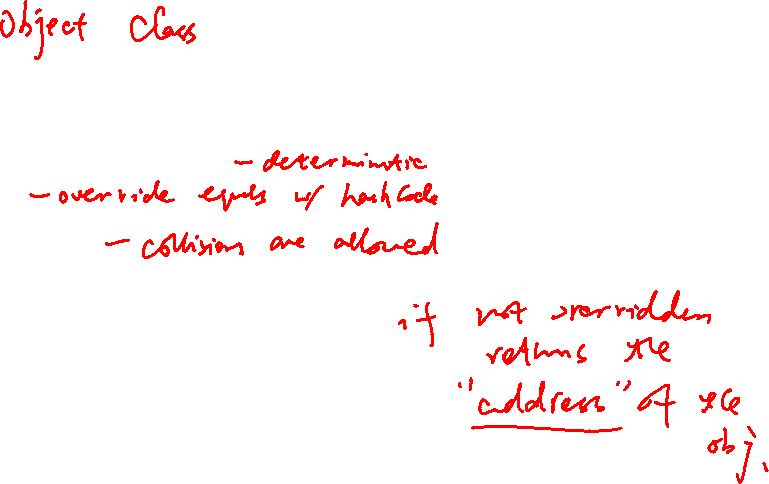 Object Class
- deterministic
- override equals w/ hashCode
- collisions are allowed
if not overridden
returns the
"address" of the
obj.